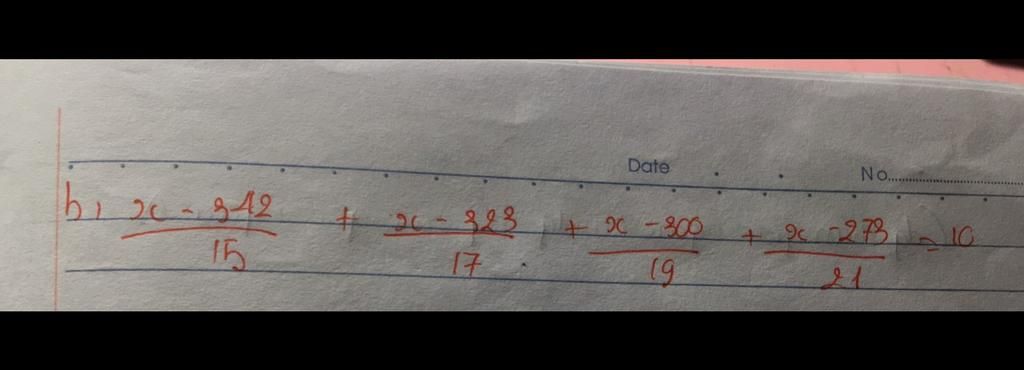 Date No
h, x - 342 / 15 + x - 323 / 17 + x - 300 / 19 + x - 273 / 21 = 10